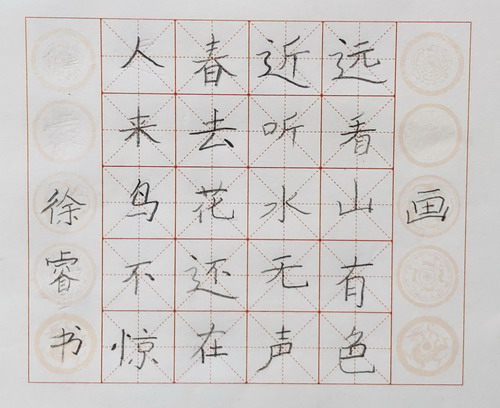 画
远看山有色
近听水无声
春去花还在
人来鸟不惊
徐睿书